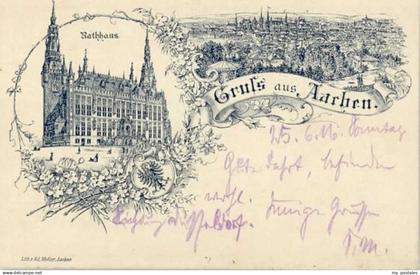 Rathhaus.
Gruß aus Aachen.
25. 6. Sonntag
Gute Fahrt, befinden
wohl. Innige Grüße
Lith. v. Ed. Meßer, Aachen
my postales